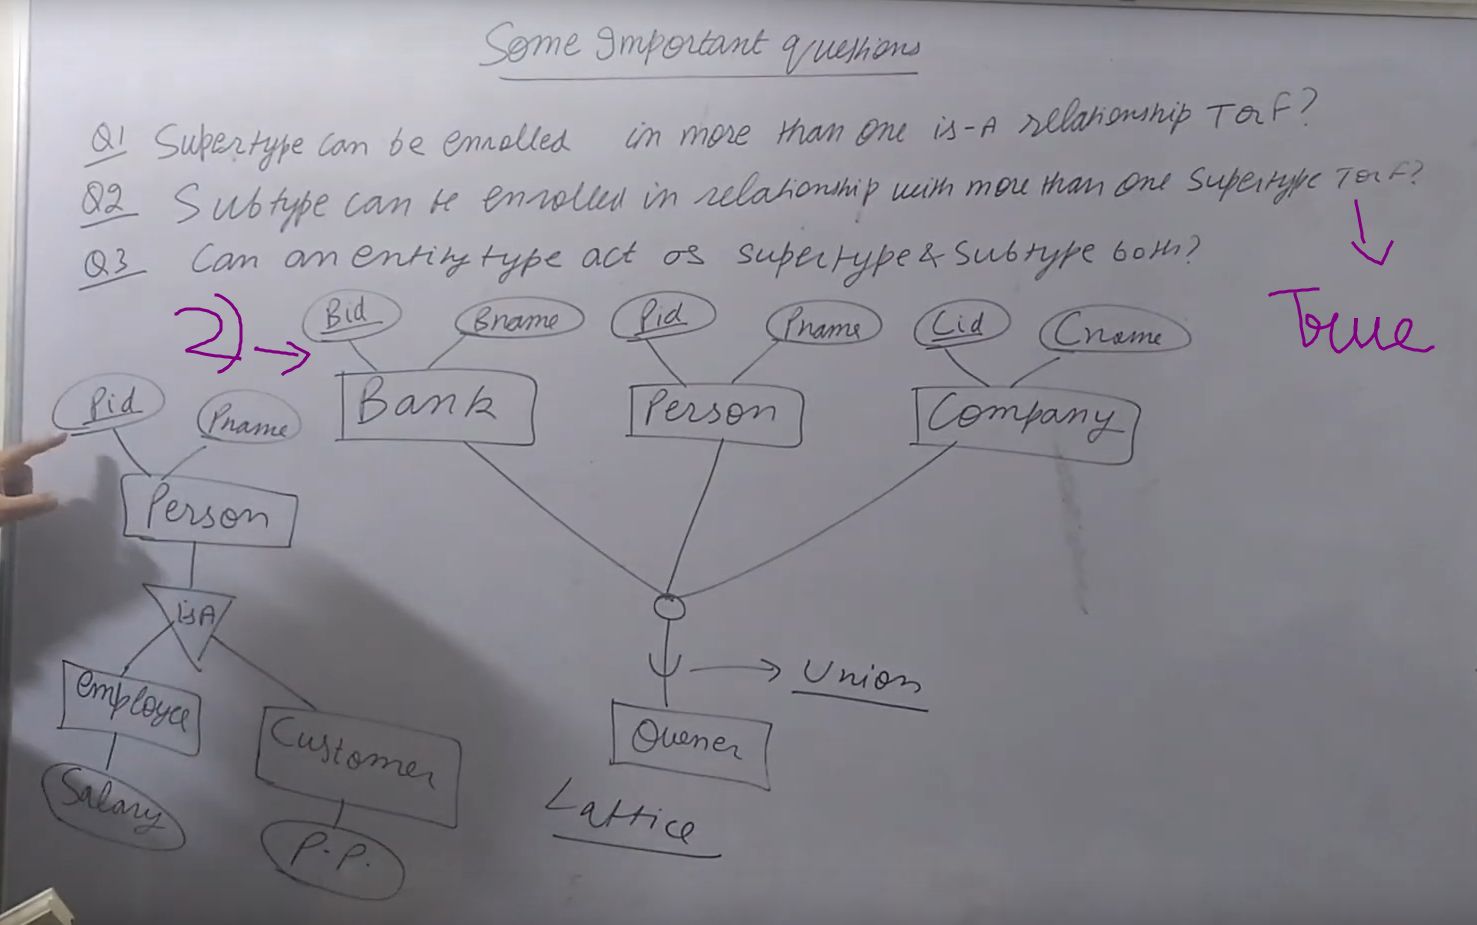 Some Important questions
Q1 Supertype can be enrolled in more than one is-A relationship T or F?
Q2 Subtype can be enrolled in relationship with more than one Supertype T or F?
Q3 Can an entity type act as supertype & Subtype both?
True
2)
Bid
Bname
Pid
Pname
Cid
Cname
Bank
Person
Company
Pid
Pname
Person
isA
Employee
Customer
Salary
P.P.
Union
Owener
Lattice